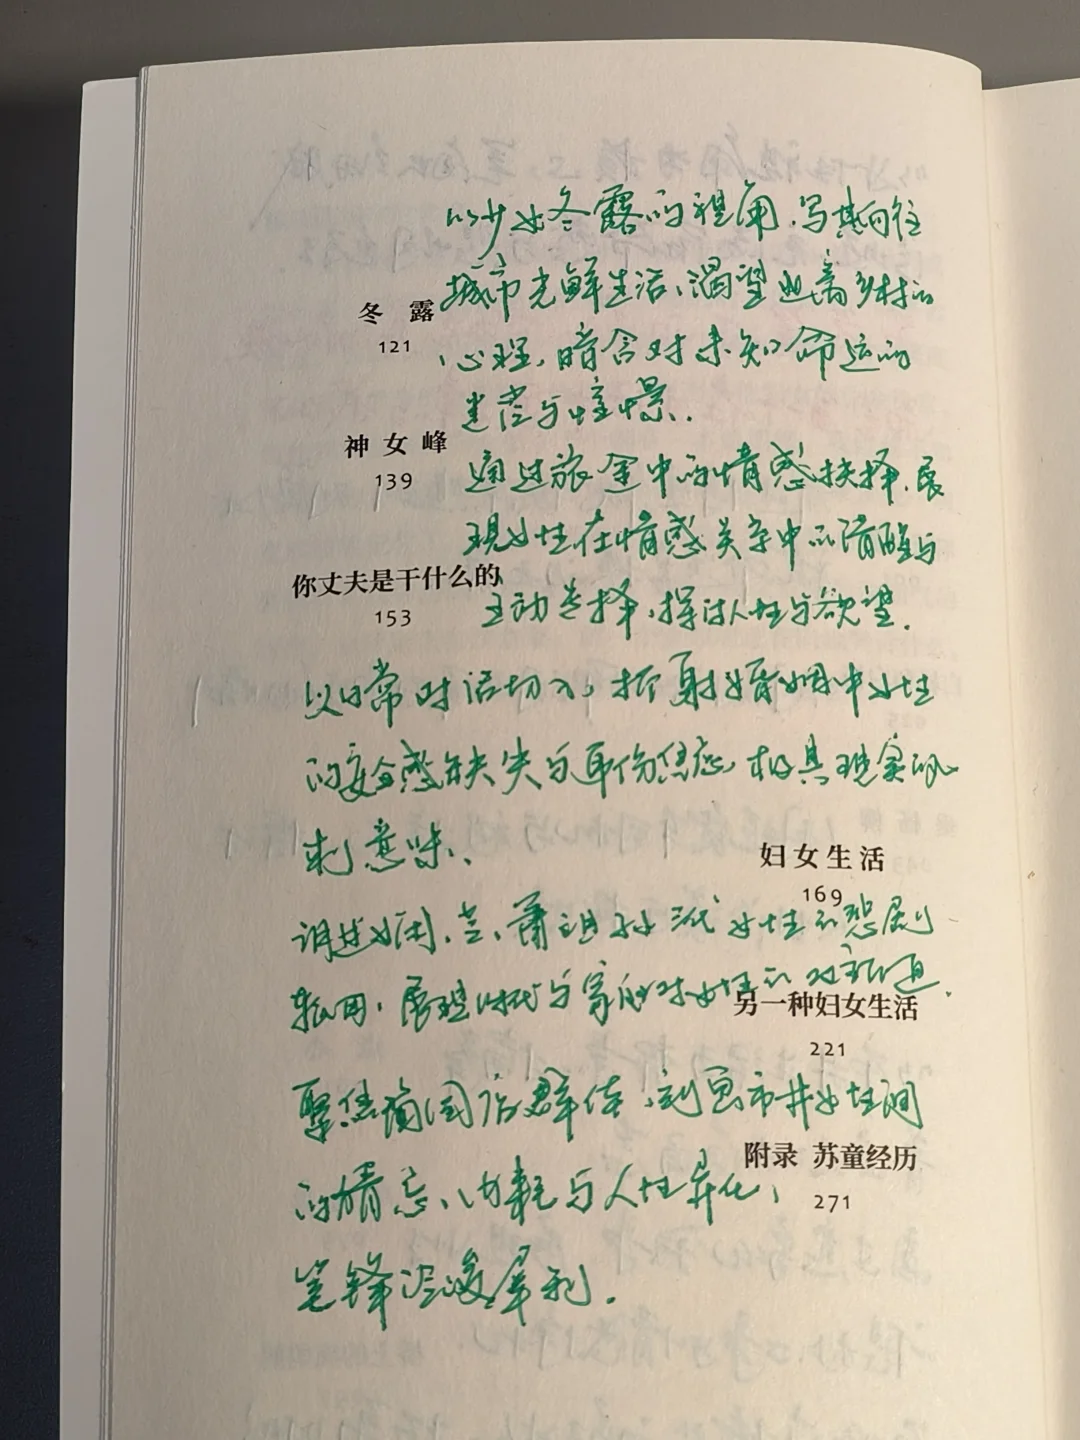 以少女冬露的视角，写其向往
冬露
121
城市光鲜生活、渴望逃离乡村的
心理，暗含对未知命运的
迷茫与憧憬。
神女峰
139
通过旅途中的情感抉择，展
现女性在情感关系中的清醒与
你丈夫是干什么的
153
主动选择，探讨人性与欲望。
以日常对话切入，折射婚姻中女性
的安全感缺失与身份焦虑，极具现实讽
刺意味。
妇女生活
169
通过娴、芝、箫祖孙三代女性的悲剧
轮回，展现时代与家庭对女性的
另一种妇女生活
221
聚焦酱园店群体，刻画市井女性间
附录 苏童经历
271
的猜忌、内耗与人性异化，
笔锋冷凌犀利。